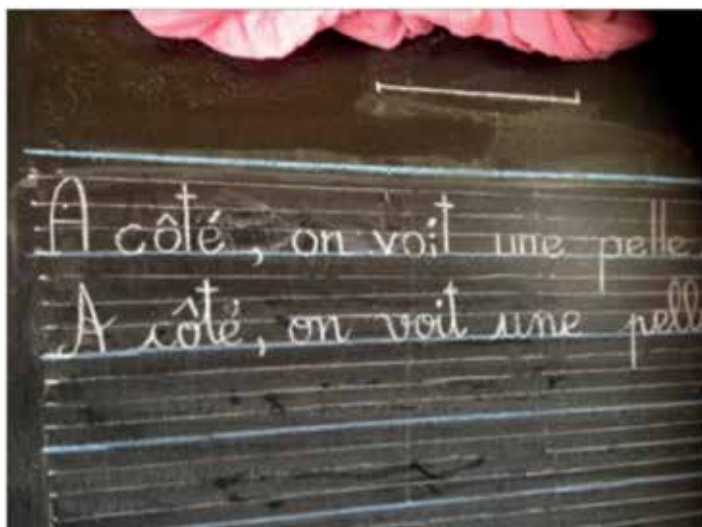 A côté, on voit une pelle
A côté, on voit une pell